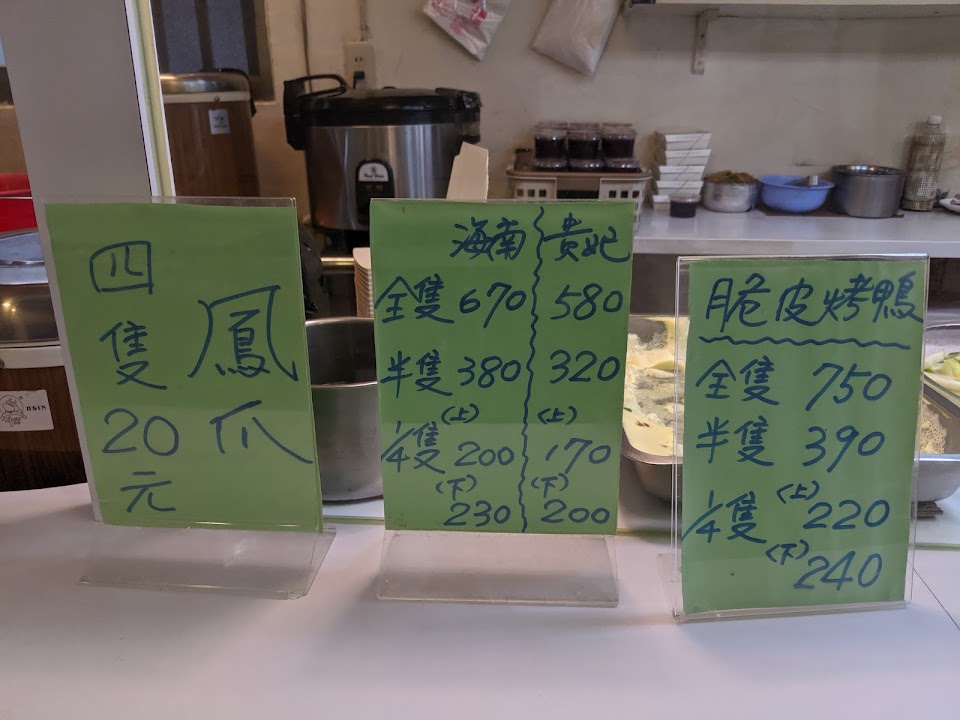 鳳爪
四隻20元
海南 貴妃
全隻 670 580
半隻 380 320
(上) (上)
1/4隻 200 170
(下) (下)
230 200
脆皮烤鴨
全隻 750
半隻 390
(上)
1/4隻 220
(下)
240